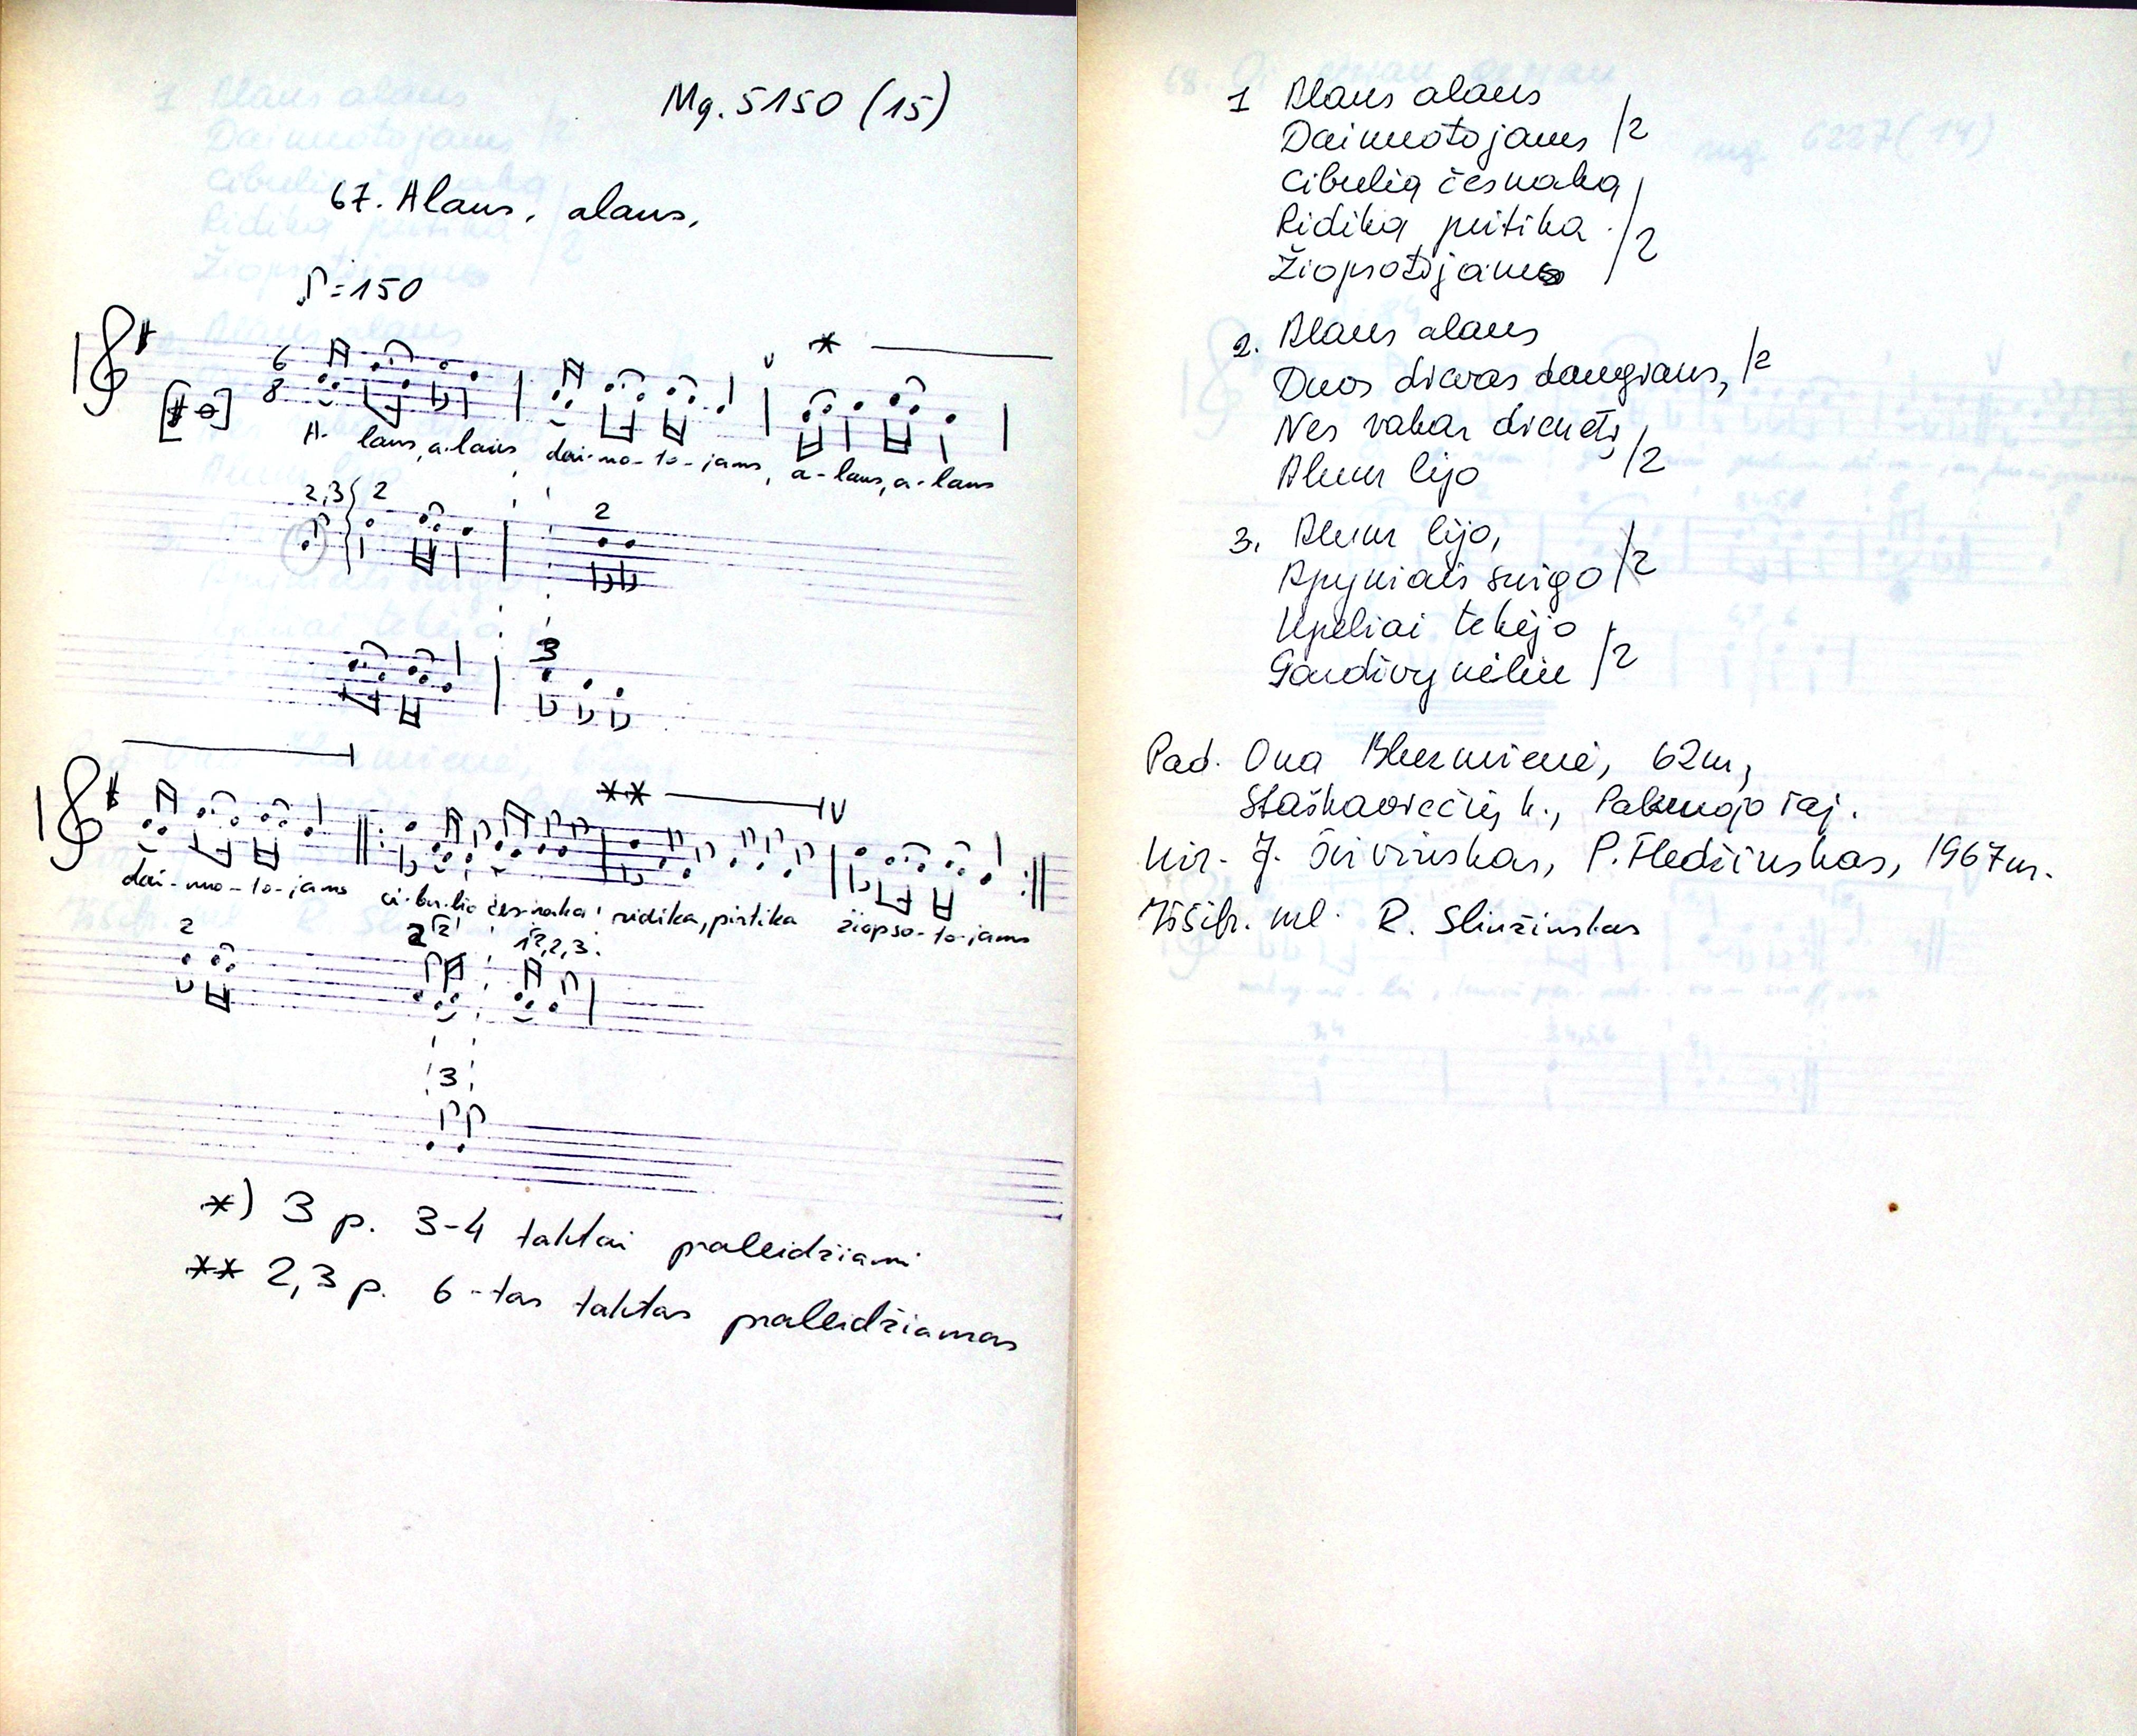 Mg. 5150 (15)
67. Alaus, alaus,
♪=150
*
6
8
A- laus, a-laus dai-no-to-jams, a-laus, a-laus
2,3 2
2
3
**
dai-no-to-jams ci-bu-lio čes-naka ridika, pirtika žiopso-to-jams
2
3
*) 3 p. 3-4 taktai praleidžiami
** 2,3 p. 6-tas taktas praleidžiamas
1 Alaus alaus
Dainuotojams /2
Cibulią česnaką
Ridiką pirtiką /2
Žiopsotojams
2. Alaus alaus
Duos dievas daugiaus, /2
Nes vakar dienelę
Alum lijo /2
3. Alum lijo,
Apyniais snigo /2
Upeliai tekėjo
Gardivynėliu /2
Pad. Ona 62m,
k., raj.
Už. J. P. 1967m.
Iššifr. R. Sliužinskas